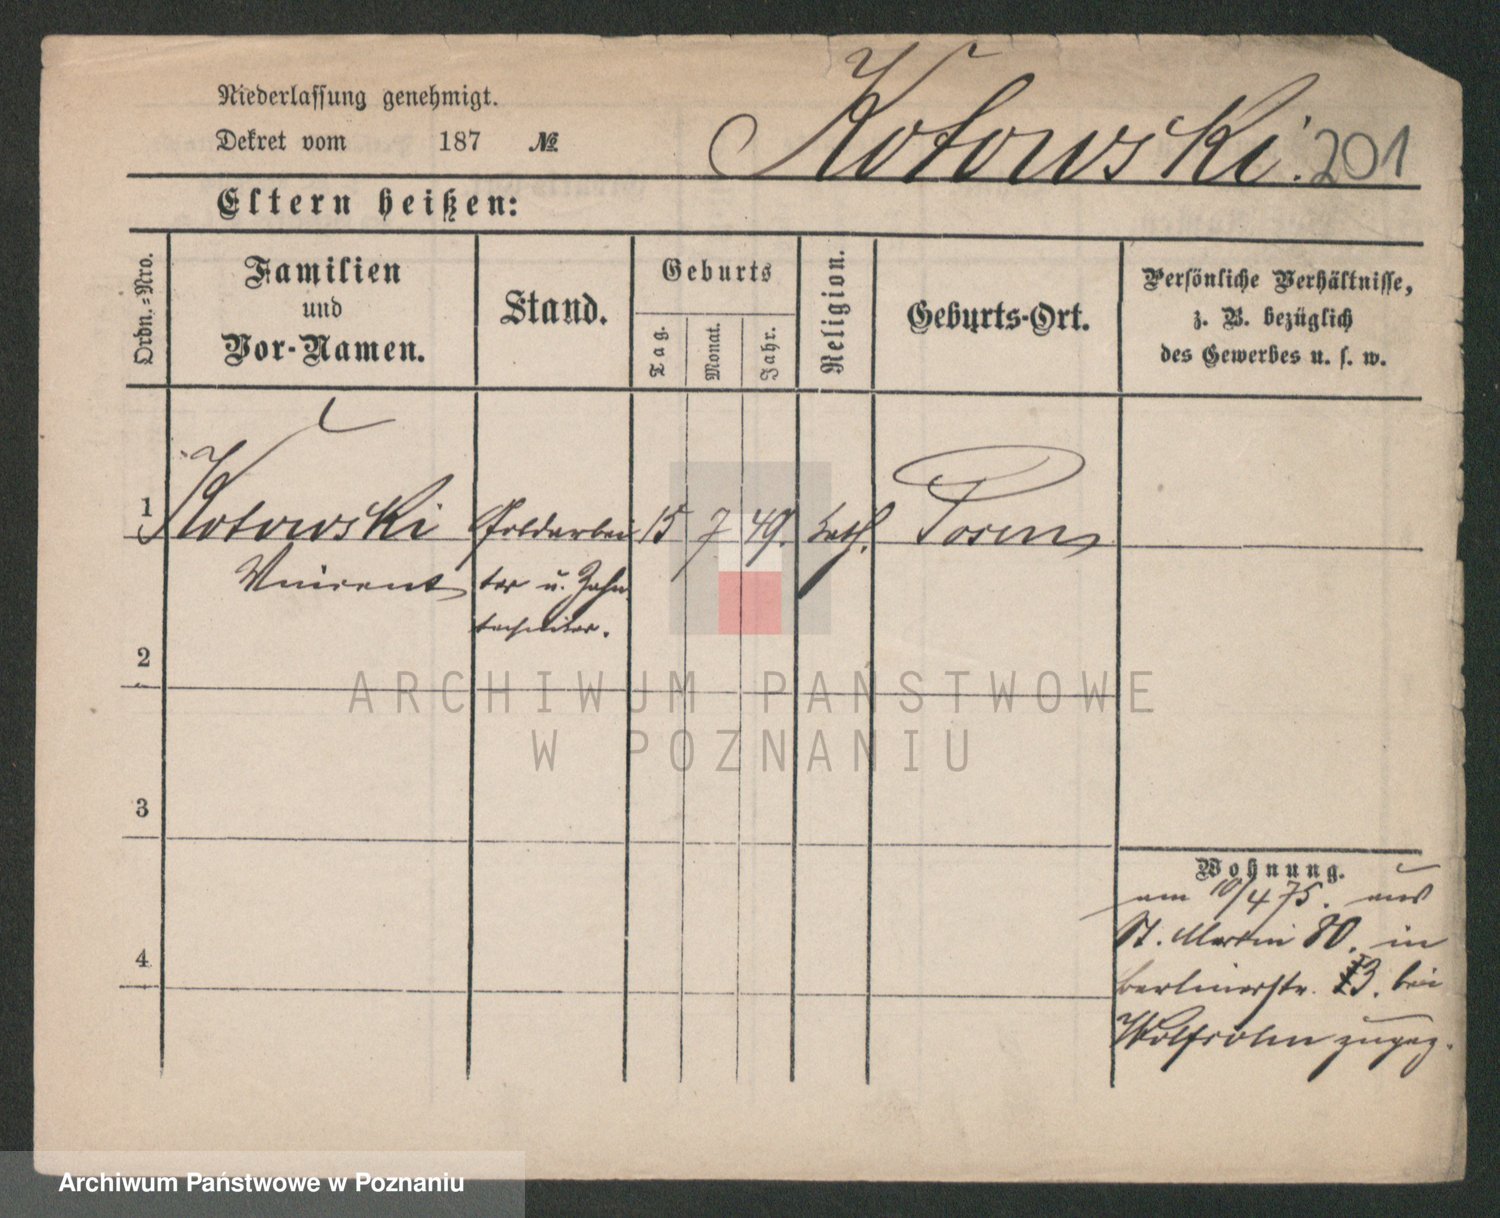 Niederlassung genehmigt.
Dekret vom 187 №
Kotowski. 201
Eltern heißen:
Ordn.-Nro.
Familien
und
Vor-Namen.
Stand.
Geburts
Tag.
Monat.
Jahr.
Religion.
Geburts-Ort.
Persönliche Verhältnisse,
z. B. bezüglich
des Gewerbes u. s. w.
1 Kotowski Goldarbei 15 7 49. kath. Posen
Vincent ter u. Zahn
techniker.
2
3
4
Wohnung.
am 10/4 75. aus
St. Martin 80. in
Berlinerstr. 13. bei
Wolfsohn zugez.
ARCHIWUM PAŃSTWOWE
W POZNANIU
Archiwum Państwowe w Poznaniu